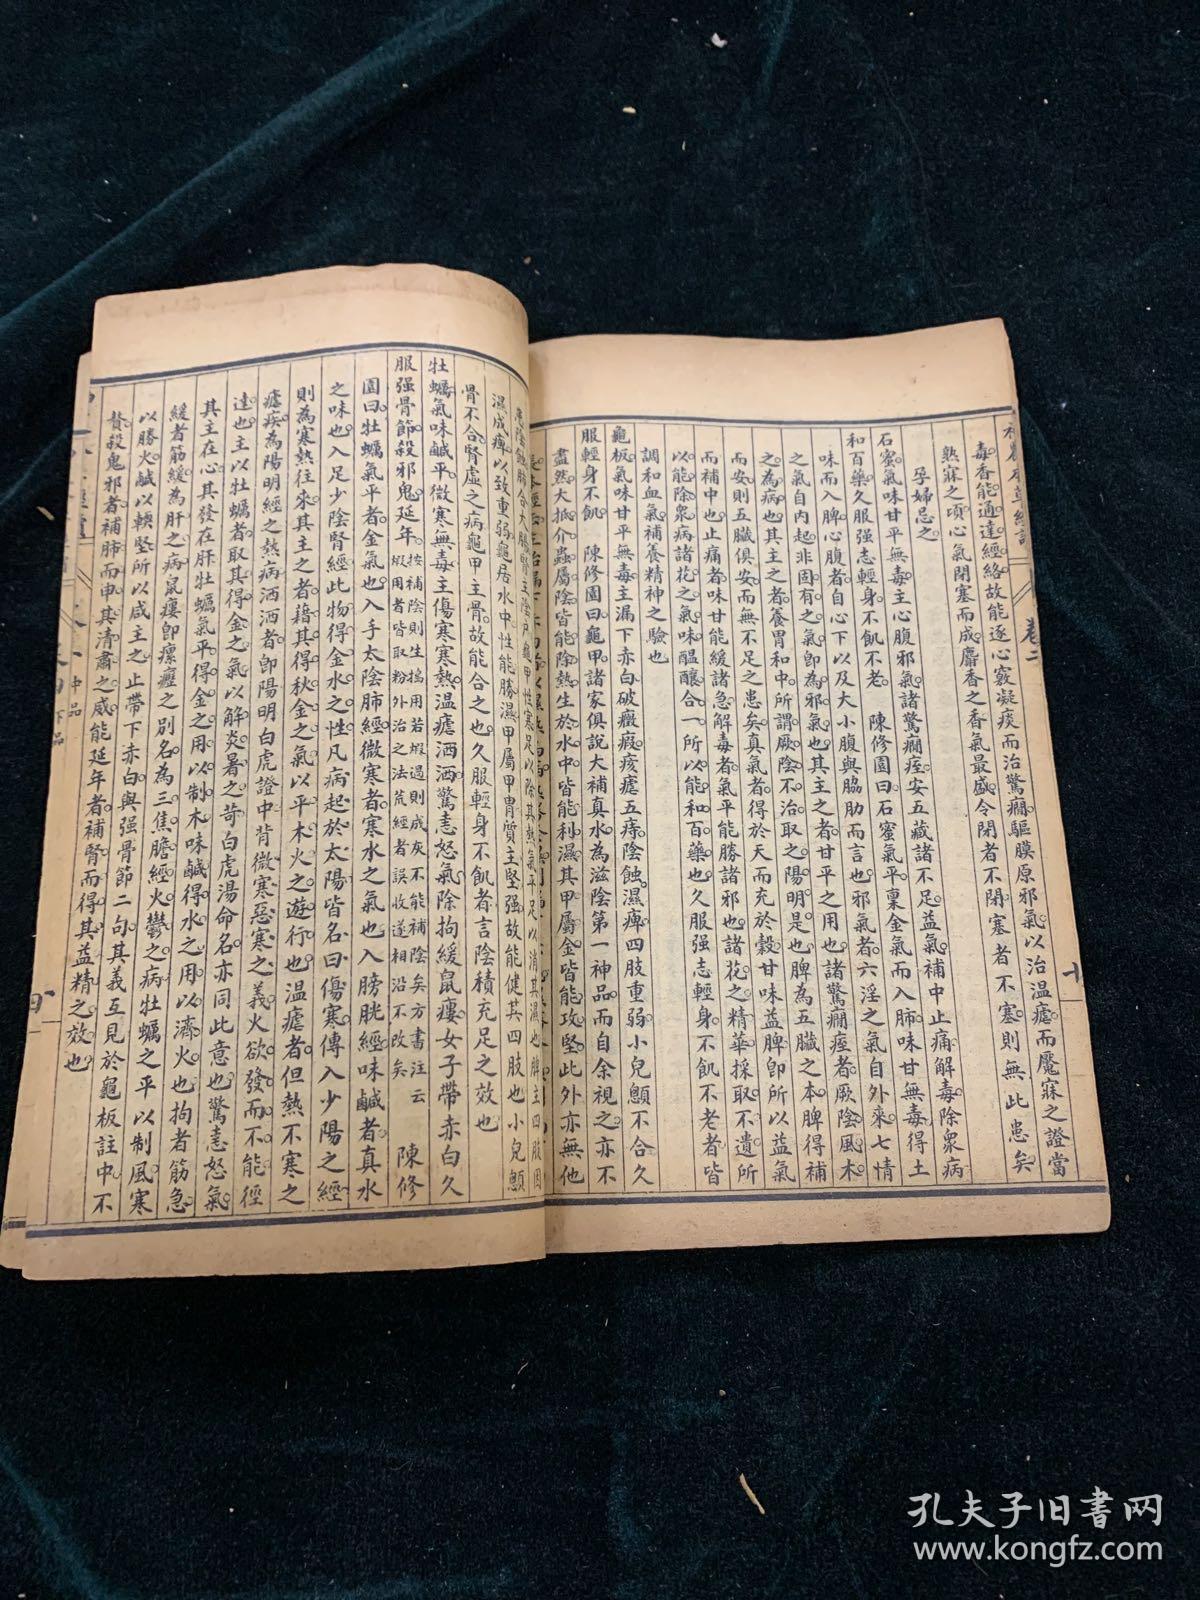 卷二
毒香能通達經絡故能逐心竅凝痰而治驚癇驅膜原邪氣以治溫瘧而魘寐之證當
熟寐之頃心氣閉塞而成麝香之香氣最盛令閉者不閉塞者不塞則無此患矣
孕婦忌之
石蜜氣味甘平無毒主心腹邪氣諸驚癇痙安五藏諸不足益氣補中止痛解毒除衆病
和百藥久服强志輕身不飢不老　陳修園曰石蜜氣平稟金氣而入肺味甘無毒得土
味而入脾心腹者自心下以及大小腹與脇肋而言也邪氣者六淫之氣自外來七情
之氣自内起非固有之氣卽為邪氣也其主之者甘平之用也諸驚癇痙者厥陰風木
之為病也其主之者養胃和中所謂厥陰不治取之陽明是也脾為五臟之本脾得補
而安則五臟俱安而無不足之患矣真氣者得於天而充於穀甘味益脾卽所以益氣
而補中也止痛者味甘能緩諸急解毒者氣平能勝諸邪也諸花之精華採取不遺所
以能除衆病諸花之氣味醞釀合一所以能和百藥也久服强志輕身不飢不老者皆
調和血氣補養精神之驗也
龜板氣味甘平無毒主漏下赤白破癥瘕痎瘧五痔陰蝕濕痺四肢重弱小兒顖不合久
服輕身不飢　陳修園曰龜甲諸家俱說大補真水為滋陰第一神品而自余視之亦不
盡然大抵介蟲屬陰皆能除熱生於水中皆能利濕其甲屬金皆能攻堅此外亦無他
濕成痺以致重弱龜居水中性能勝濕甲屬甲冑質主堅强故能健其四肢也小兒顖
骨不合腎虛之病龜甲主骨故能合之也久服輕身不飢者言陰積充足之效也
牡蠣氣味鹹平微寒無毒主傷寒寒熱溫瘧洒洒驚恚怒氣除拘緩鼠瘻女子帶赤白久
服强骨節殺邪鬼延年按補陰則生搗用若煆過則成灰不能補陰矣方書注云煆用者皆取粉外治之法荒經者誤收遂相沿不改矣　陳修
園曰牡蠣氣平者金氣也入手太陰肺經微寒者寒水之氣也入膀胱經味鹹者真水
之味也入足少陰腎經此物得金水之性凡病起於太陽皆名曰傷寒傳入少陽之經
則為寒熱往來其主之者藉其得秋金之氣以平木火之遊行也溫瘧者但熱不寒之
瘧疾為陽明經之熱病洒洒者卽陽明白虎證中背微寒惡寒之義火欲發而不能徑
達也主以牡蠣者取其得金之氣以解炎暑之苛白虎湯命名亦同此意也驚恚怒氣
其主在心其發在肝牡蠣氣平得金之用以制木味鹹得水之用以濟火也拘者筋急
緩者筋緩為肝之病鼠瘻卽瘰癧之別名為三焦膽經火鬱之病牡蠣之平以制風寒
以勝火鹹以輭堅所以咸主之止帶下赤白與强骨節二句其義互見於龜板註中不
贅殺鬼邪者補肺而申其清肅之威能延年者補腎而得其益精之效也
中品
孔夫子旧書网
www.kongfz.com